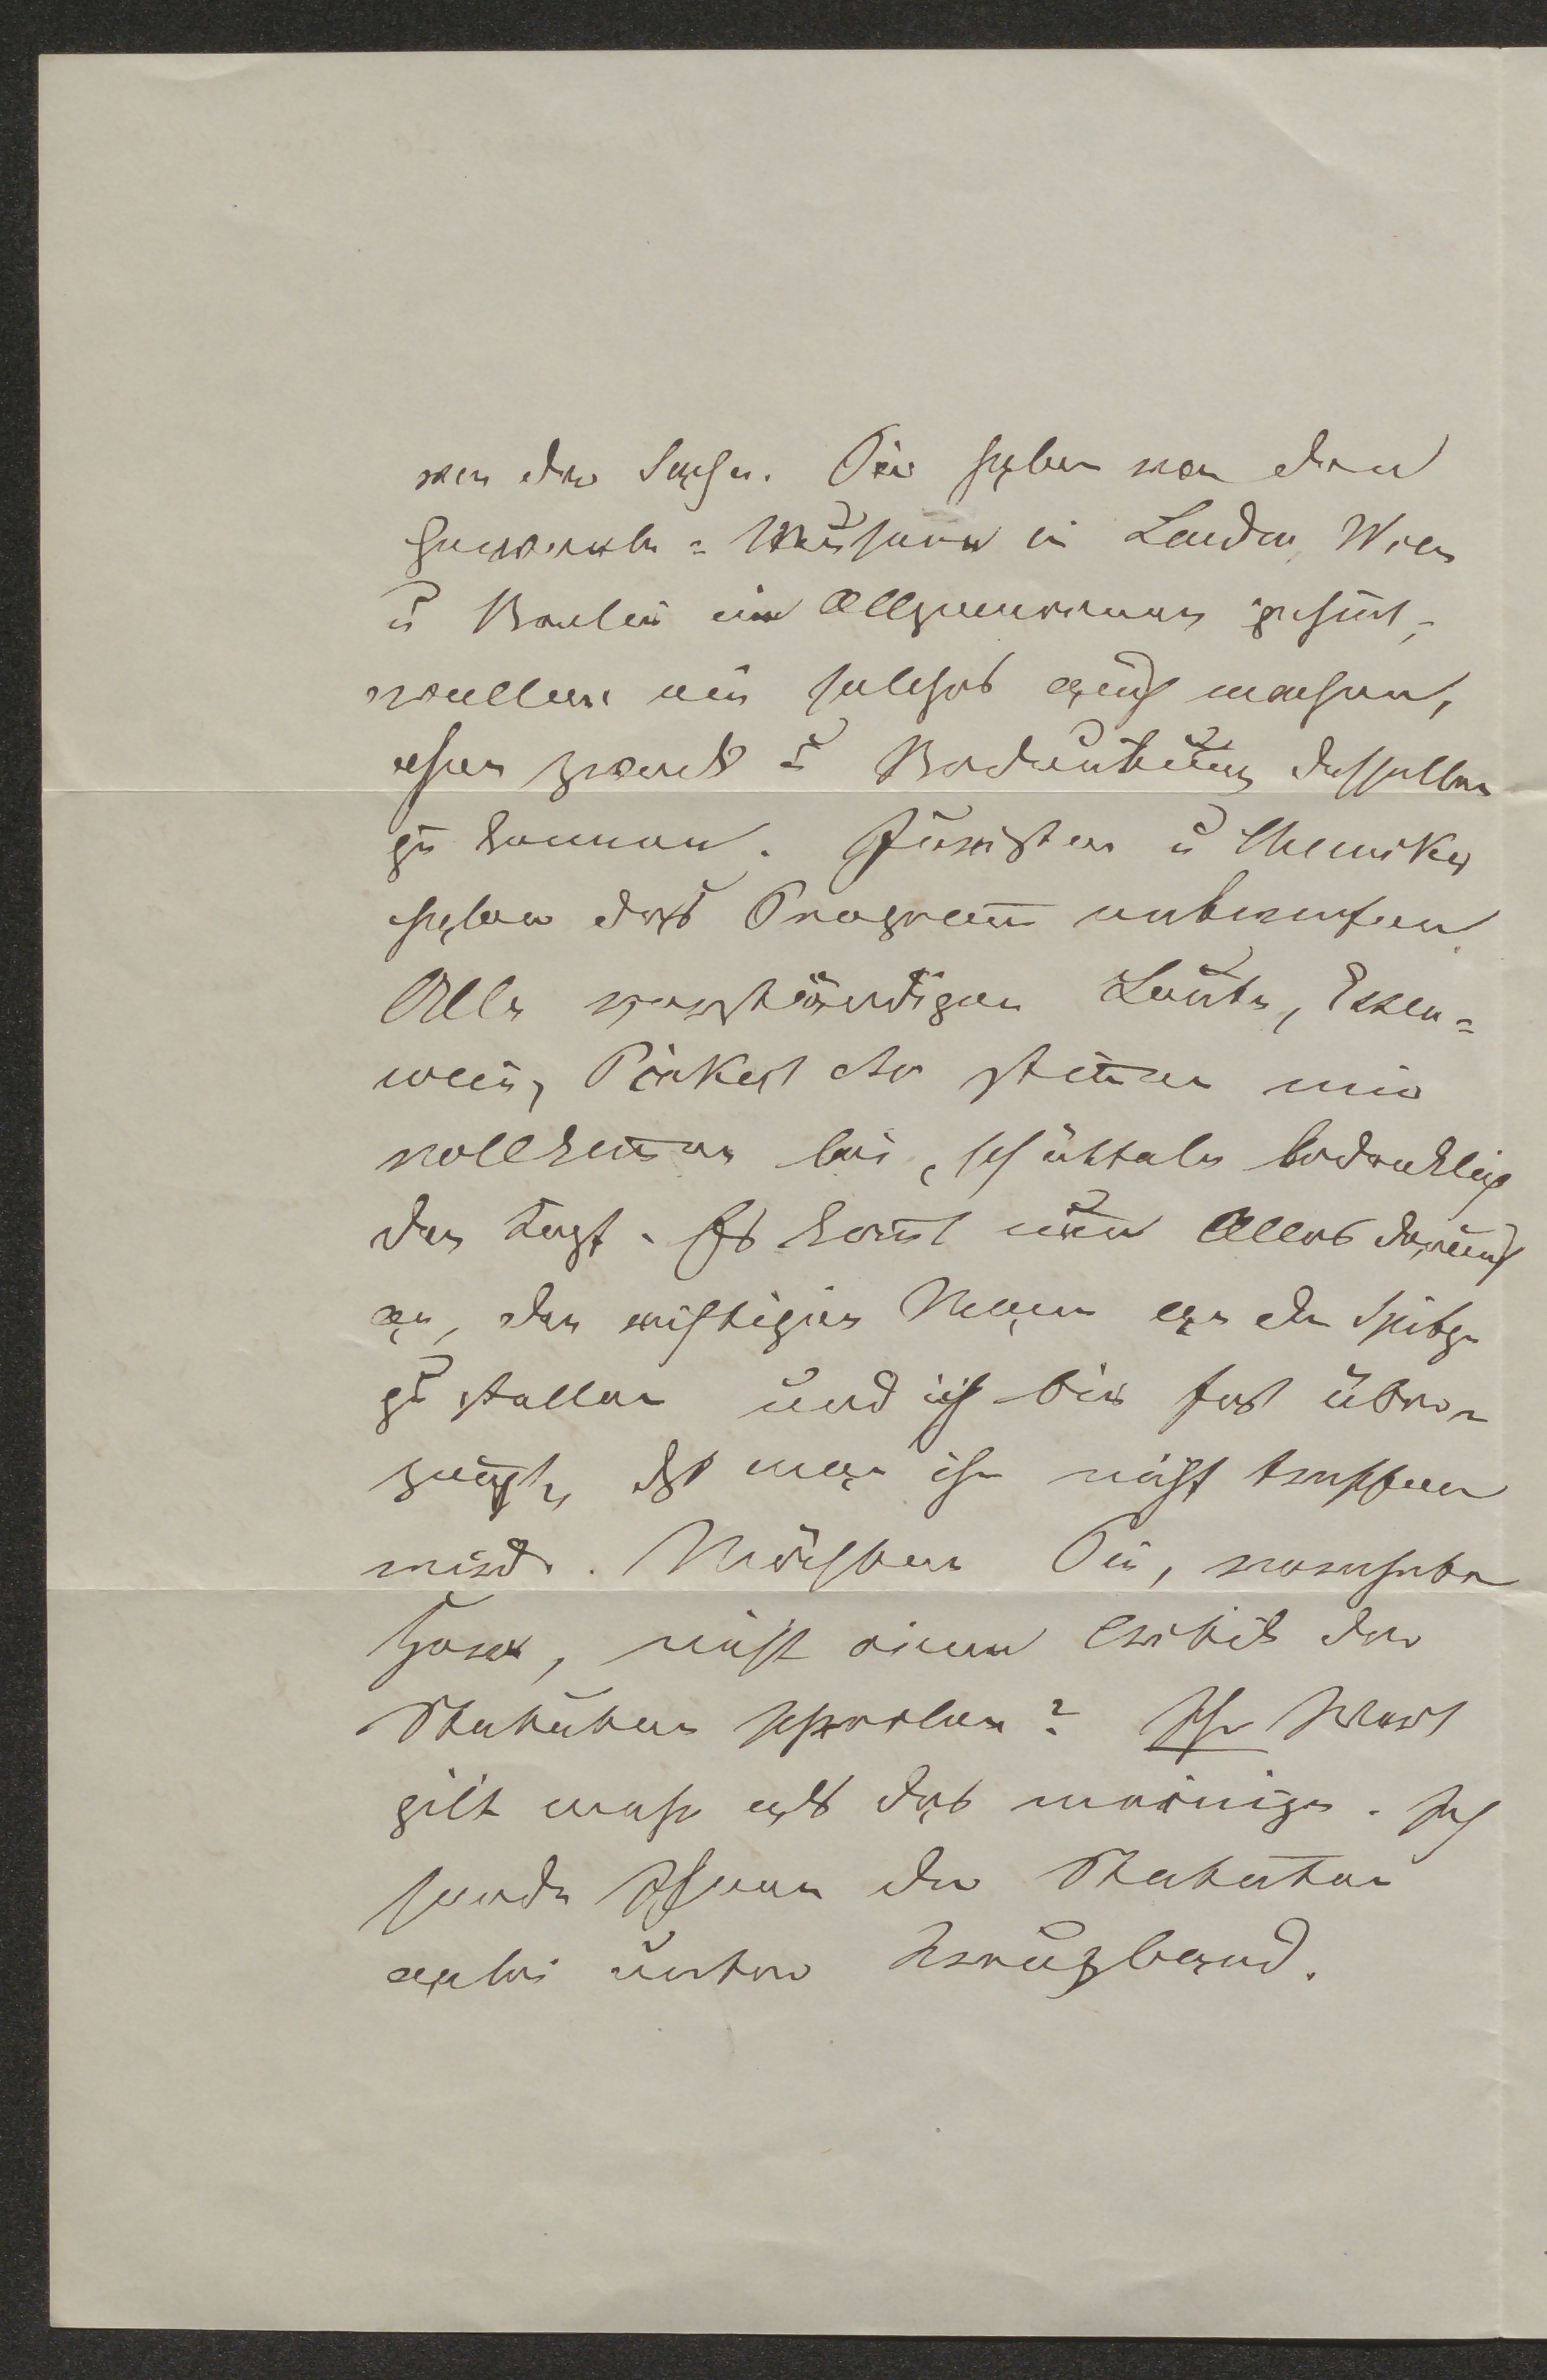 von der Sache. Sie haben von den
Gewerbe=Museen in London, Wien
u Berlin im Allgemeinen gehört,
wollen ein solches auch machen,
ohne Zweck u Bedeutung desselben
zu kennen. Juristen u Chemiker
haben das Program entworfen.
Alle verständigen Leute, Essen=
wein, Pickert etc stimen mir
vollkomen bei, schütteln bedenklich
den Kopf. Es komt nun Alles darauf
an, den richtigen Mann an die Spitze
zu stellen und ich bin fest über=
zeugt, daß man ihn nicht treffen
wird. Möchten Sie, verehrter
Herr, nicht eine Critik der
Statuten schreiben? Ihr Wort
gilt mehr als das meinige. Ich
sende Ihnen die Statuten
anbei unter Kreuzband.